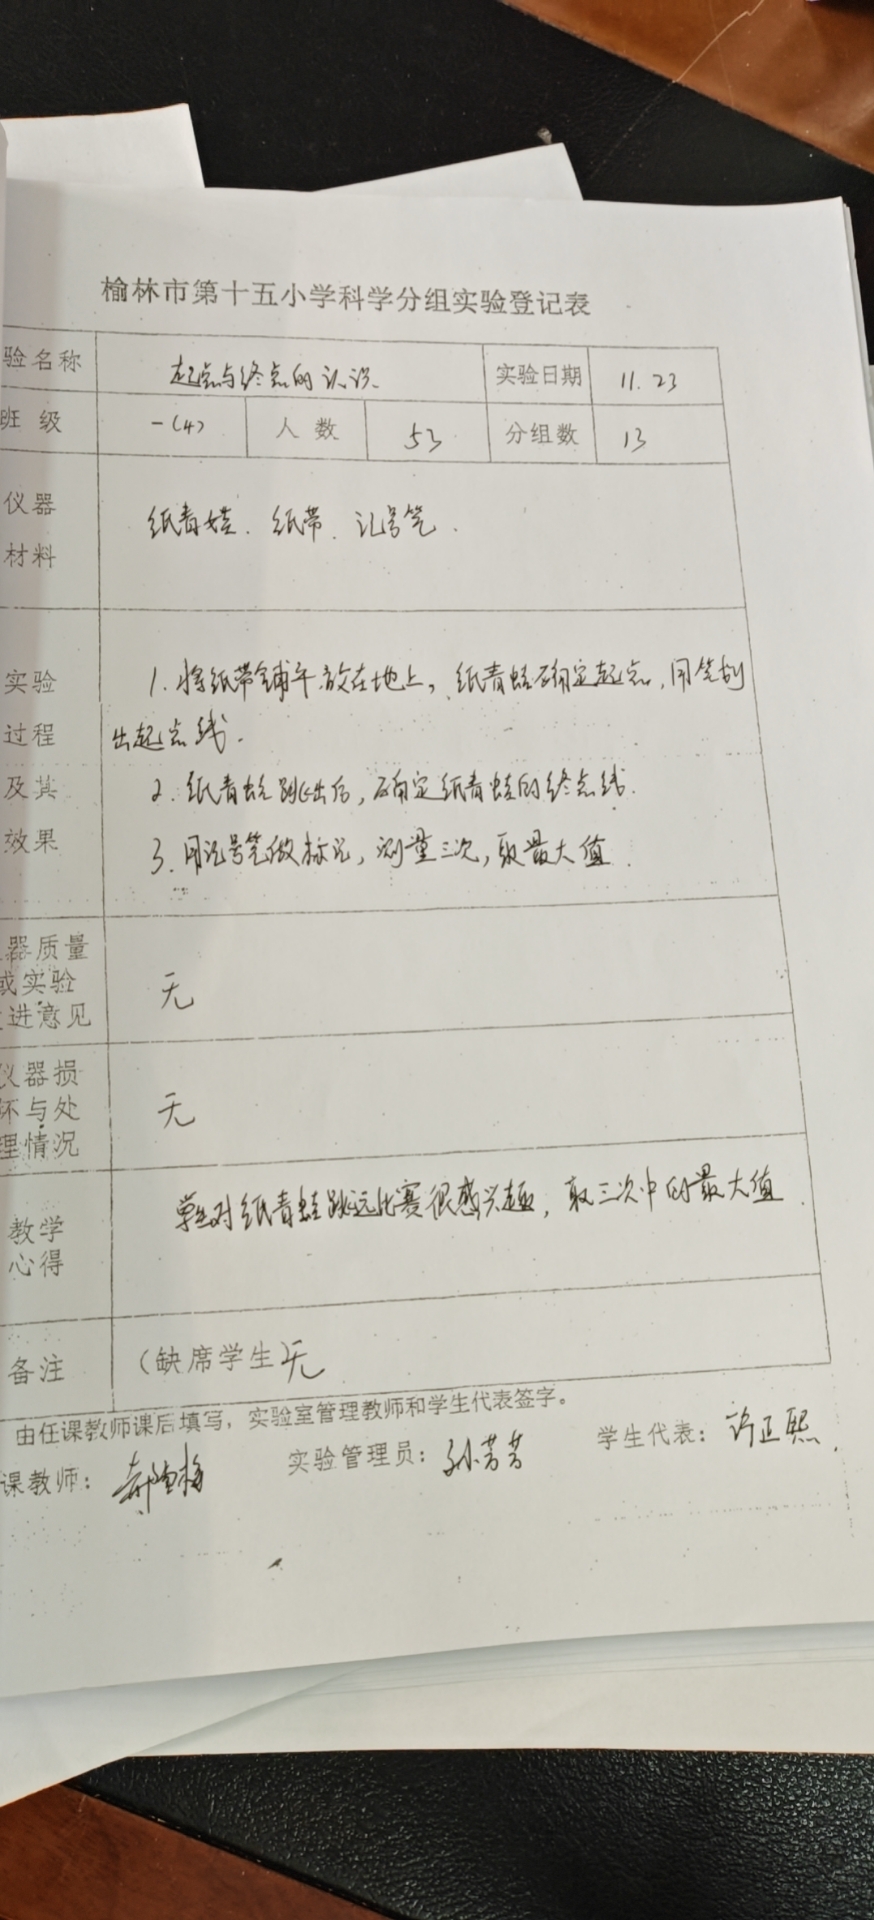 榆林市第十五小学科学分组实验登记表
验名称 起点与终点的认识 实验日期 11.23
班级 一(4) 人数 53 分组数 13
仪器
材料
纸青蛙、纸带、记号笔.
实验
过程
及其
效果
1. 将纸带铺平放在地上, 纸青蛙确定起点, 用笔划
出起点线.
2. 纸青蛙跳出后, 确定纸青蛙的终点线.
3. 用记号笔做标记, 测量三次, 取最大值.
器质量
或实验
进意见
无
仪器损
坏与处
理情况
无
教学
心得
学生对纸青蛙跳远比赛很感兴趣, 取三次中的最大值.
备注 (缺席学生)无
由任课教师课后填写, 实验室管理教师和学生代表签字。
课教师: 实验管理员: 孙芳芳 学生代表: 许正熙.